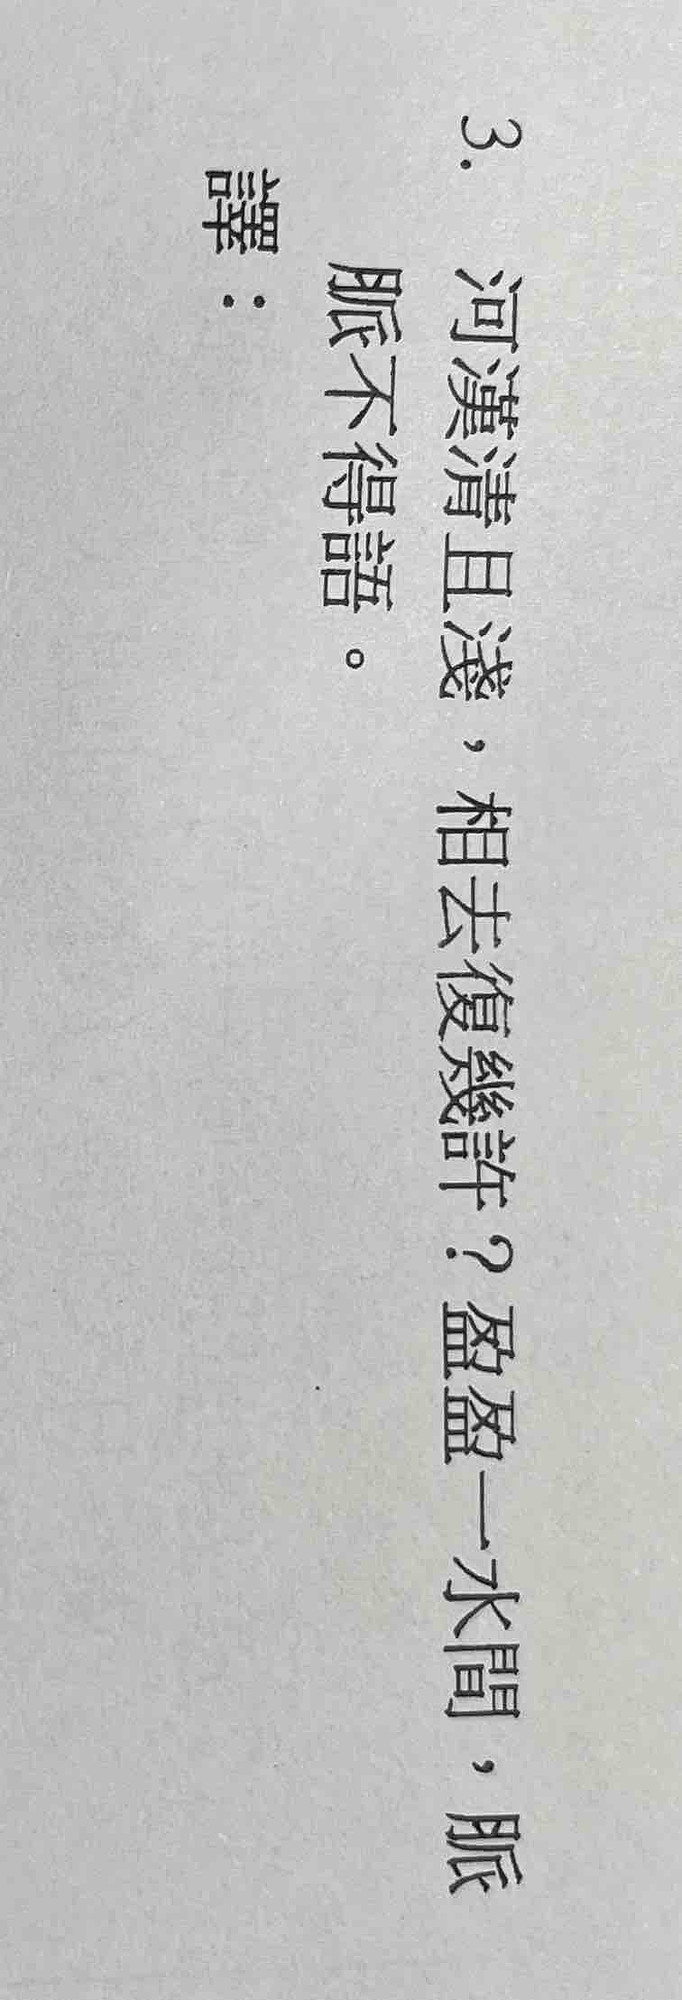 3. 河漢清且淺，相去復幾許？盈盈一水間，脈
脈不得語。
譯：